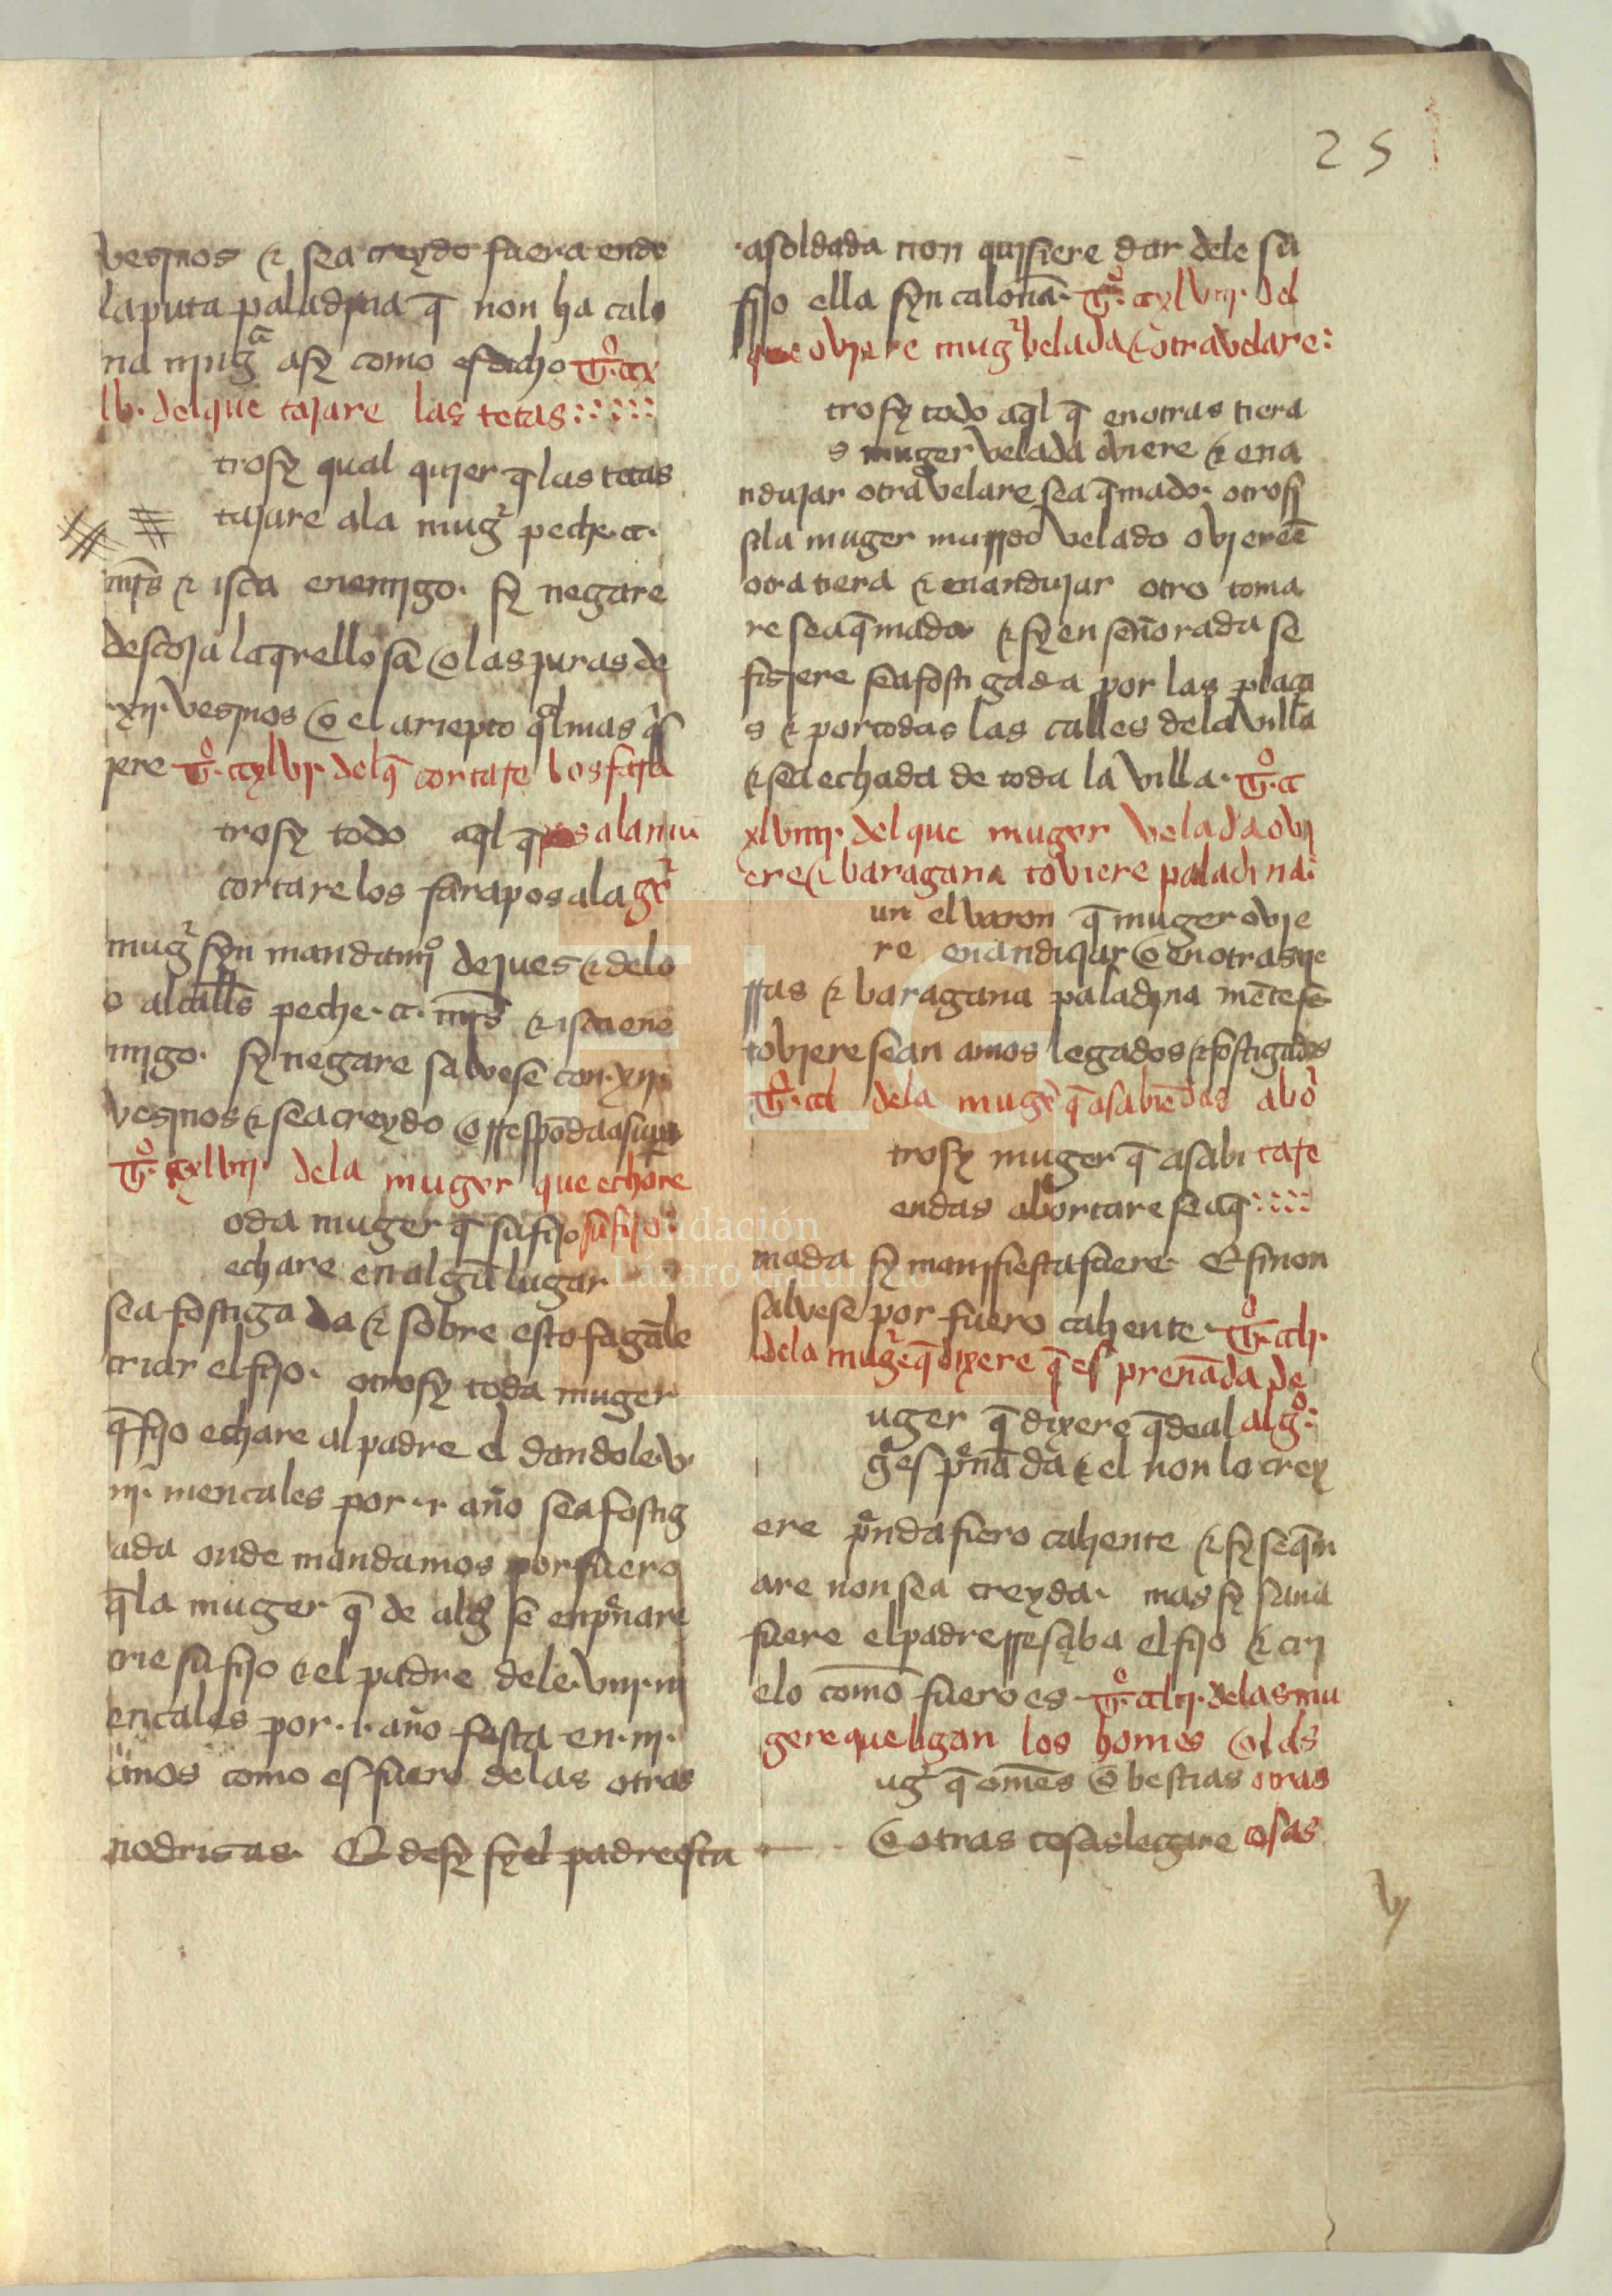 25
vesjnos & sea creydo fuera ende
la puta paladjna q̄ non ha calo
na njng̃a asy como es dicho tº. cx
lv. del que tajare las tetas :::::
trosy qual qujer q̄ las tetas
tajare ala mug̃r peche .c.
mr̄s & isca enemjgo. sy negare
descoja la q̄rellosa ō las juras de
.xij. vesjnos ō el ariepto q̄l mas q̄s
jere tº. cxlvj. del q̄ cortare los fara
trosy todo aq̄l q̄ pos ala mu
cortare los farapos ala ger
mug̃r syn mandamjº de jues & delo
s alcall̄s peche .c. mr̄s & isca ene
mjgo. sy negare salvese con .xij.
vesjnos & sea creydo o rresponda a su par
tº. cxlvij. dela muger que echare
oda muger q̄ su fijo su fijo
echare en algū lugar
sea fostigada & sobre esto fagāle
criar el fijo. otrosy toda muger
q̄ fijo echare al padre el dandole .v
iij. mencales por .i. año sea fostig
ada onde mandamos por fuero
q̄ la muger q̄ de alg̃º se enpr̄nare
crie su fijo & el padre dele .viij. m
encales por .i. año fasta en .iij.
años como es fuero delas otras
nodrisas. E desy sy el padre esta
asoldada non qujsiere dar dele su
fijo ella syn caloña. tº. cxlviij. del
que ovjere mug̃r velada & otra velare :
trosy todo aq̄l q̄ en otras tiera
s muger velada oviere & en a
ndujar otra velare sea q̄mado. otrosi
si la muger marjdo velado ovjere ē
otra tiera & en andujar otro toma
re sea q̄mada & sy enseñorada se
fisjere sea fostigada por las plaça
s & por todas las calles dela villa
& sea echada de toda la villa. tº. c
xlviiij. del que muger velada ovj
ere & baragana toviere paladina :
un el varon q̄ muger ovje
re en andujar ō en otras tie
rras & baragana paladjna mētese
tovjere sean amos legados & fostigados
tº. cl dela mug̃r q̄ a sabiēdas abor
trosy muger q̄ a sabi tare
endas abortare sea q̄ ::::
mada sy manjfiesta fuere. E si non
salvese por fuero caljente. tº. clj.
dela mug̃r q̄ dixere q̄ es preñada de
uger q̄ dixere q̄ de al algº :
gº es pr̄ñada & el non lo crey
ere pr̄nda fiero caljente & sy se q̄m
are non sea creyda. mas sy sana
fuere el padre rresçiba el fijo & crj
elo como fuero es. tº. clij. delas mu
gere que ligan los homes o las
ug̃r q̄ omēs ō bestias otras
ō otras cosas legare cosas
vj